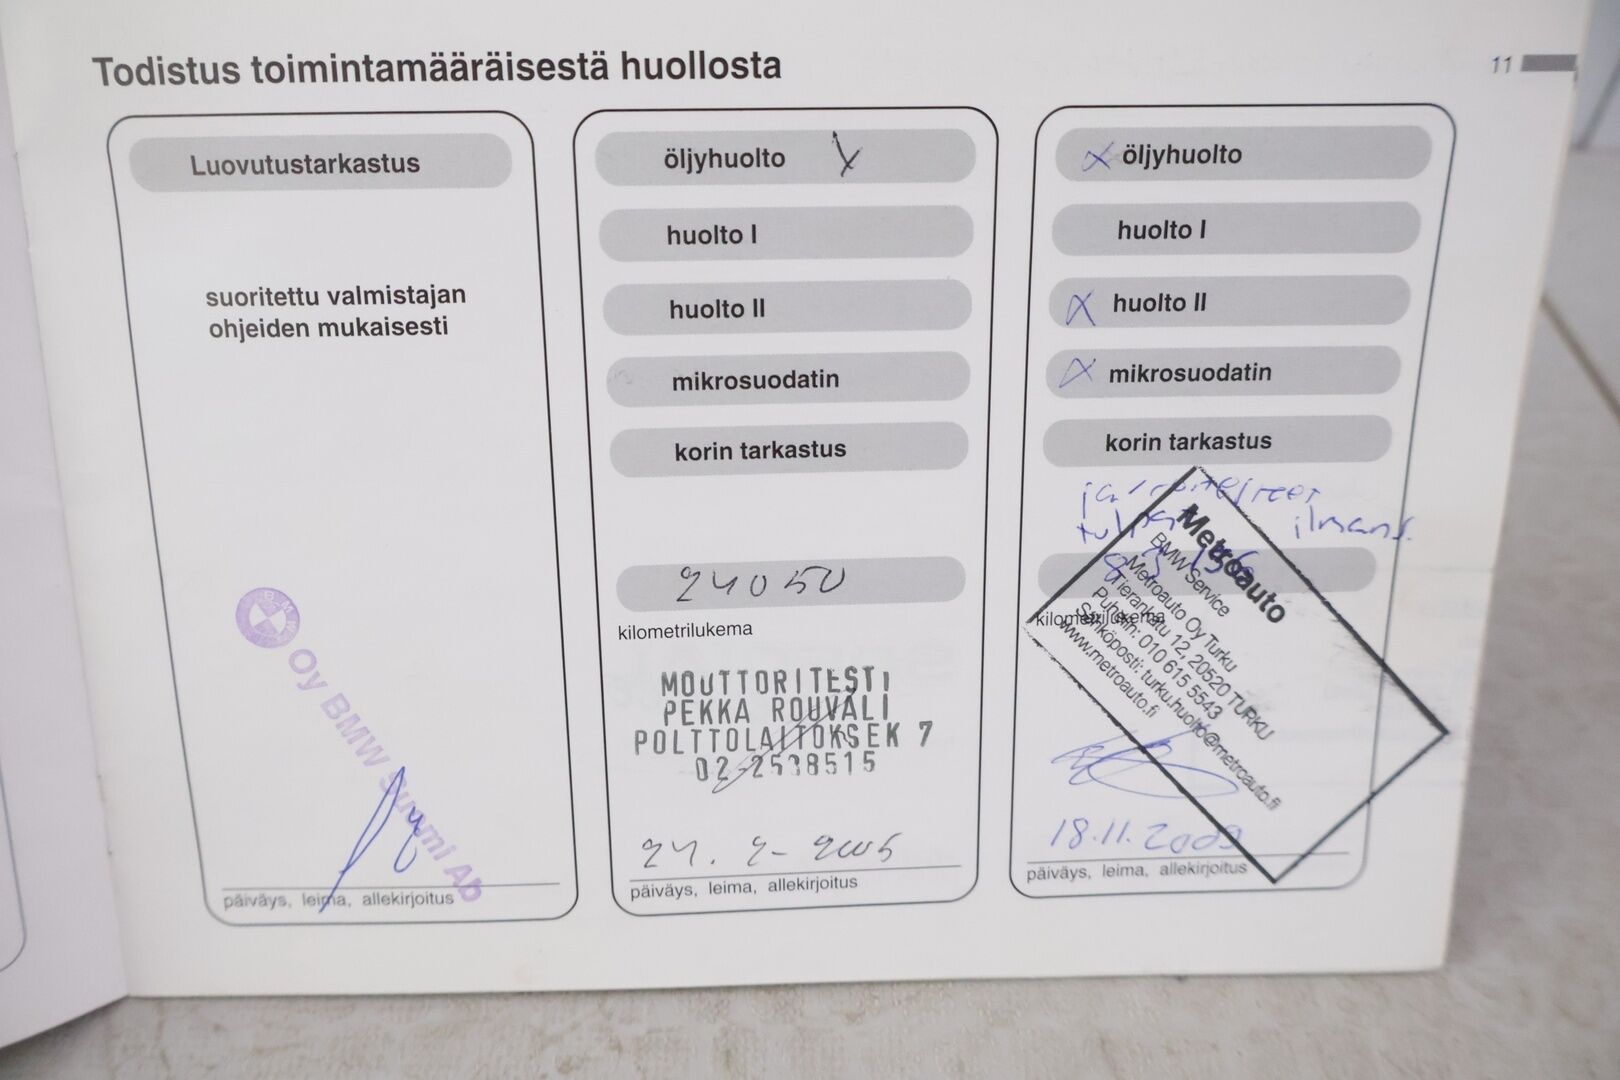 Todistus toimintamääräisestä huollosta
11
Luovutustarkastus
suoritettu valmistajan
ohjeiden mukaisesti
BMW
Oy BMW Suomi Ab
päiväys, leima, allekirjoitus
öljyhuolto X
huolto I
huolto II
mikrosuodatin
korin tarkastus
24050
kilometrilukema
MOUTTORITESTI
PEKKA ROUVALI
POLTTOLAITOKSEK 7
02-2538515
24. 2- 2005
päiväys, leima, allekirjoitus
X öljyhuolto
huolto I
X huolto II
X mikrosuodatin
korin tarkastus
ilmans.
kilometrilukema
Metroauto
BMW Service
Metroauto Oy Turku
Tierankatu 12, 20520 TURKU
Puhelin: 010 615 5543
Sähköposti: turku.huolto@metroauto.fi
www.metroauto.fi
18.11.2009
päiväys, leima, allekirjoitus